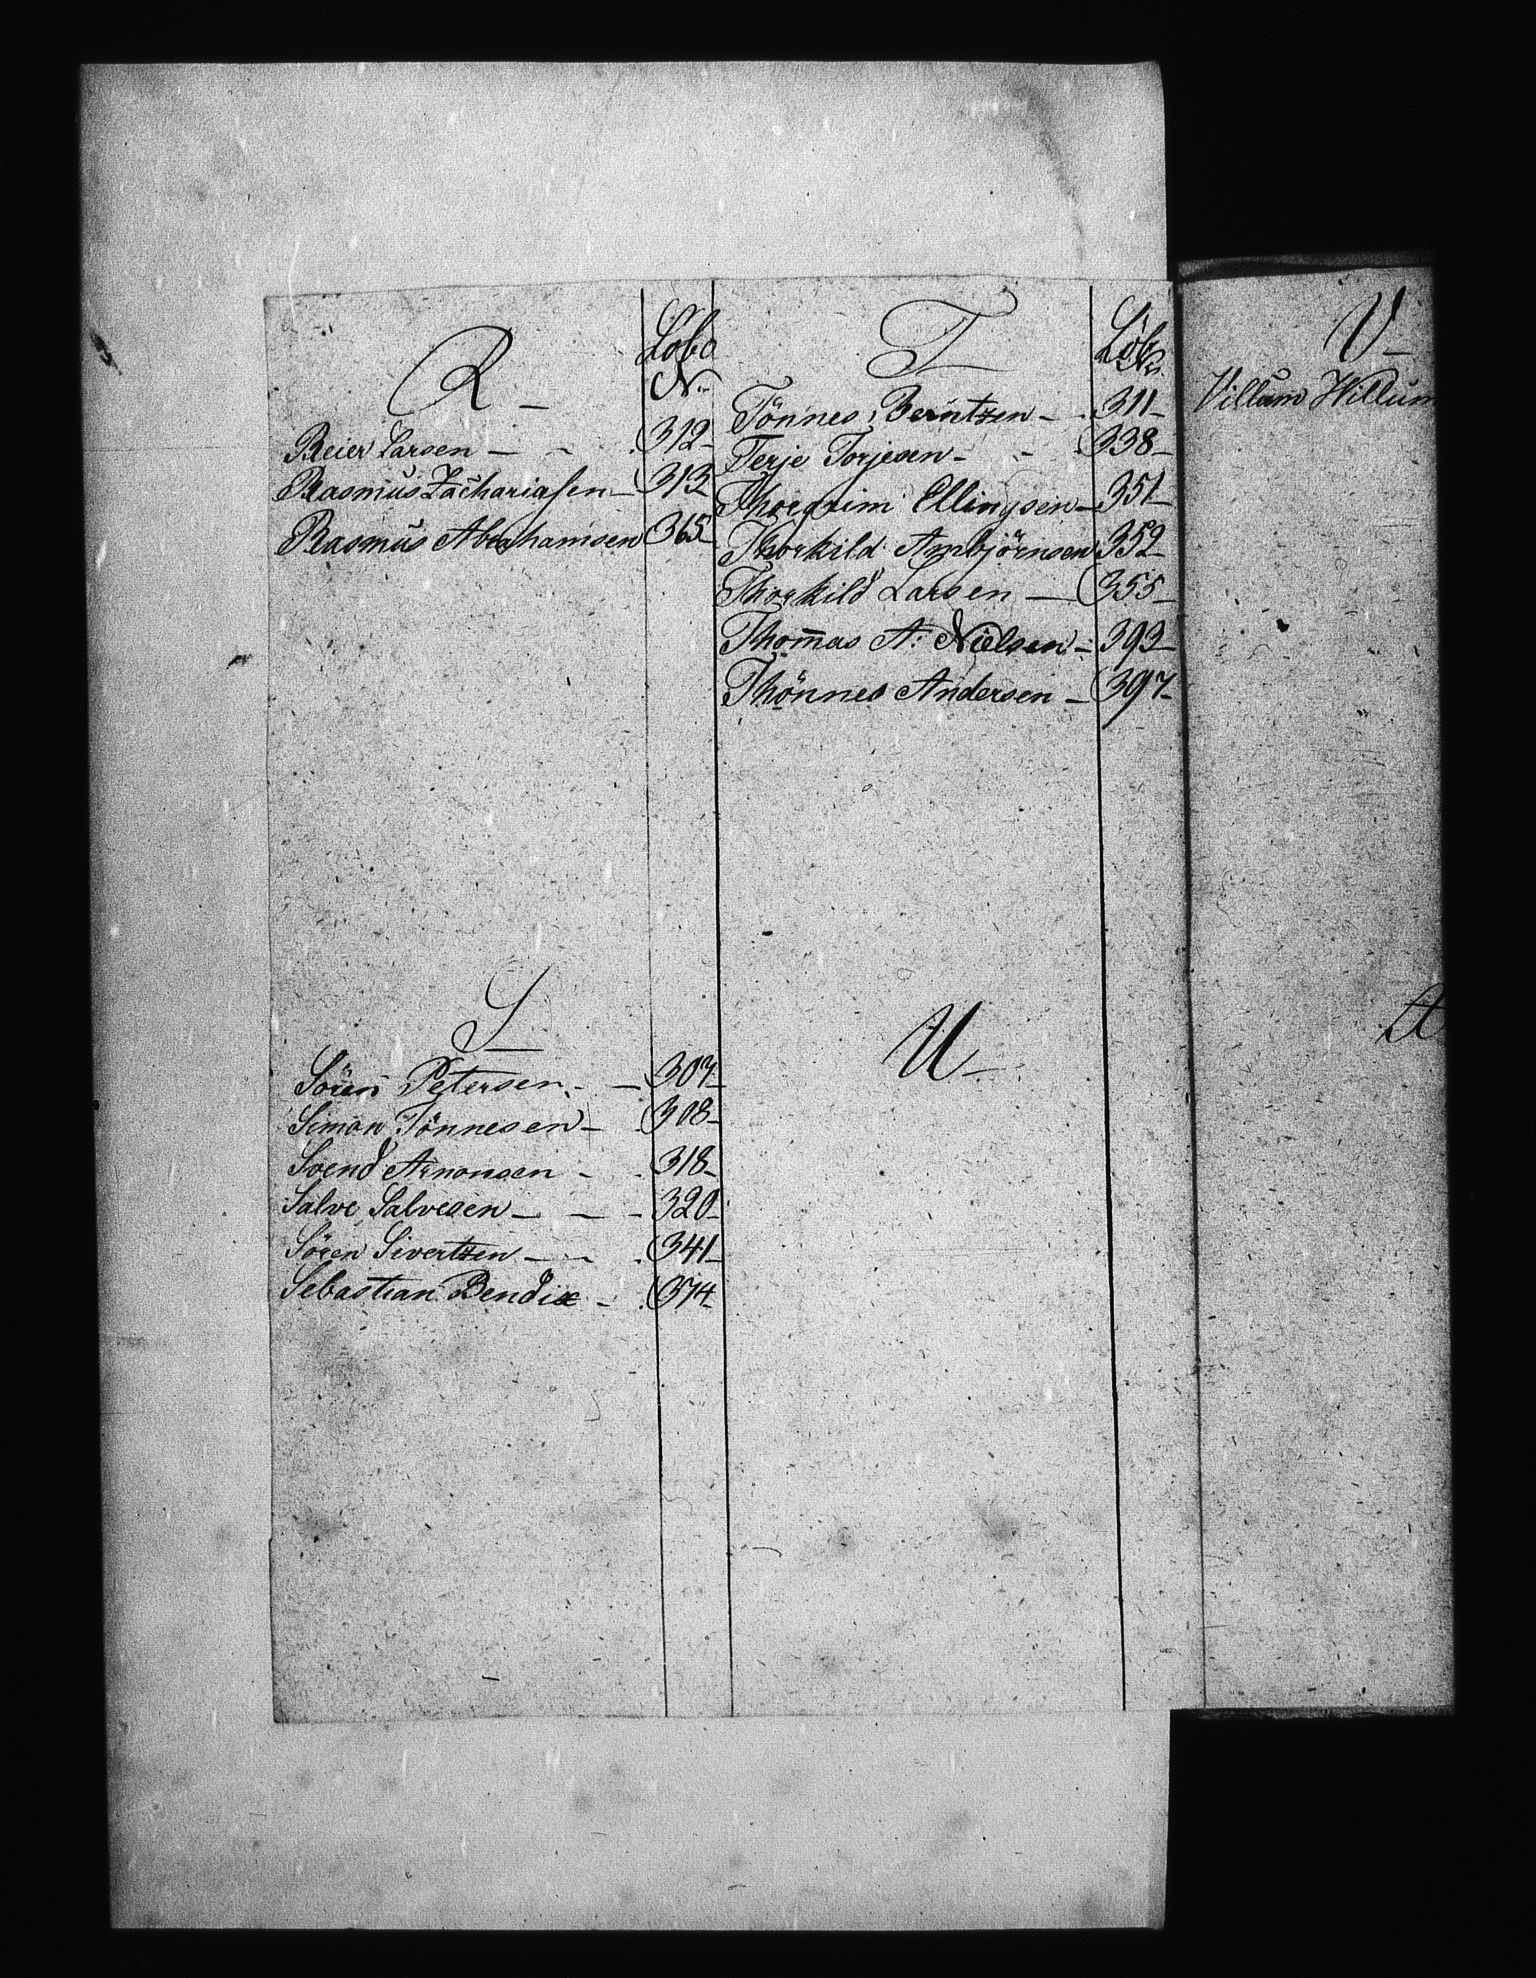 R
Löbe
No
Reier Larsen 312
Rasmus Zachariasen 313
Rasmus Abrahamsen 365
S
Sören Petersen 307
Simon Tönnesen 308
Svend Arnousen 318
Salve Salvesen 320
Sören Sivertzen 341
Sebastian Bendix 374
T
Löbe
No
Tönnes Berntzen 311
Terje Torjesen 338
Thorgrim Ellingsen 351
Thorkild Ambjörnsen 352
Thorkild Larsen 355
Thom̅as A: Nielsen 393
Thönnes Andersen 397
U
V
Villum Willum